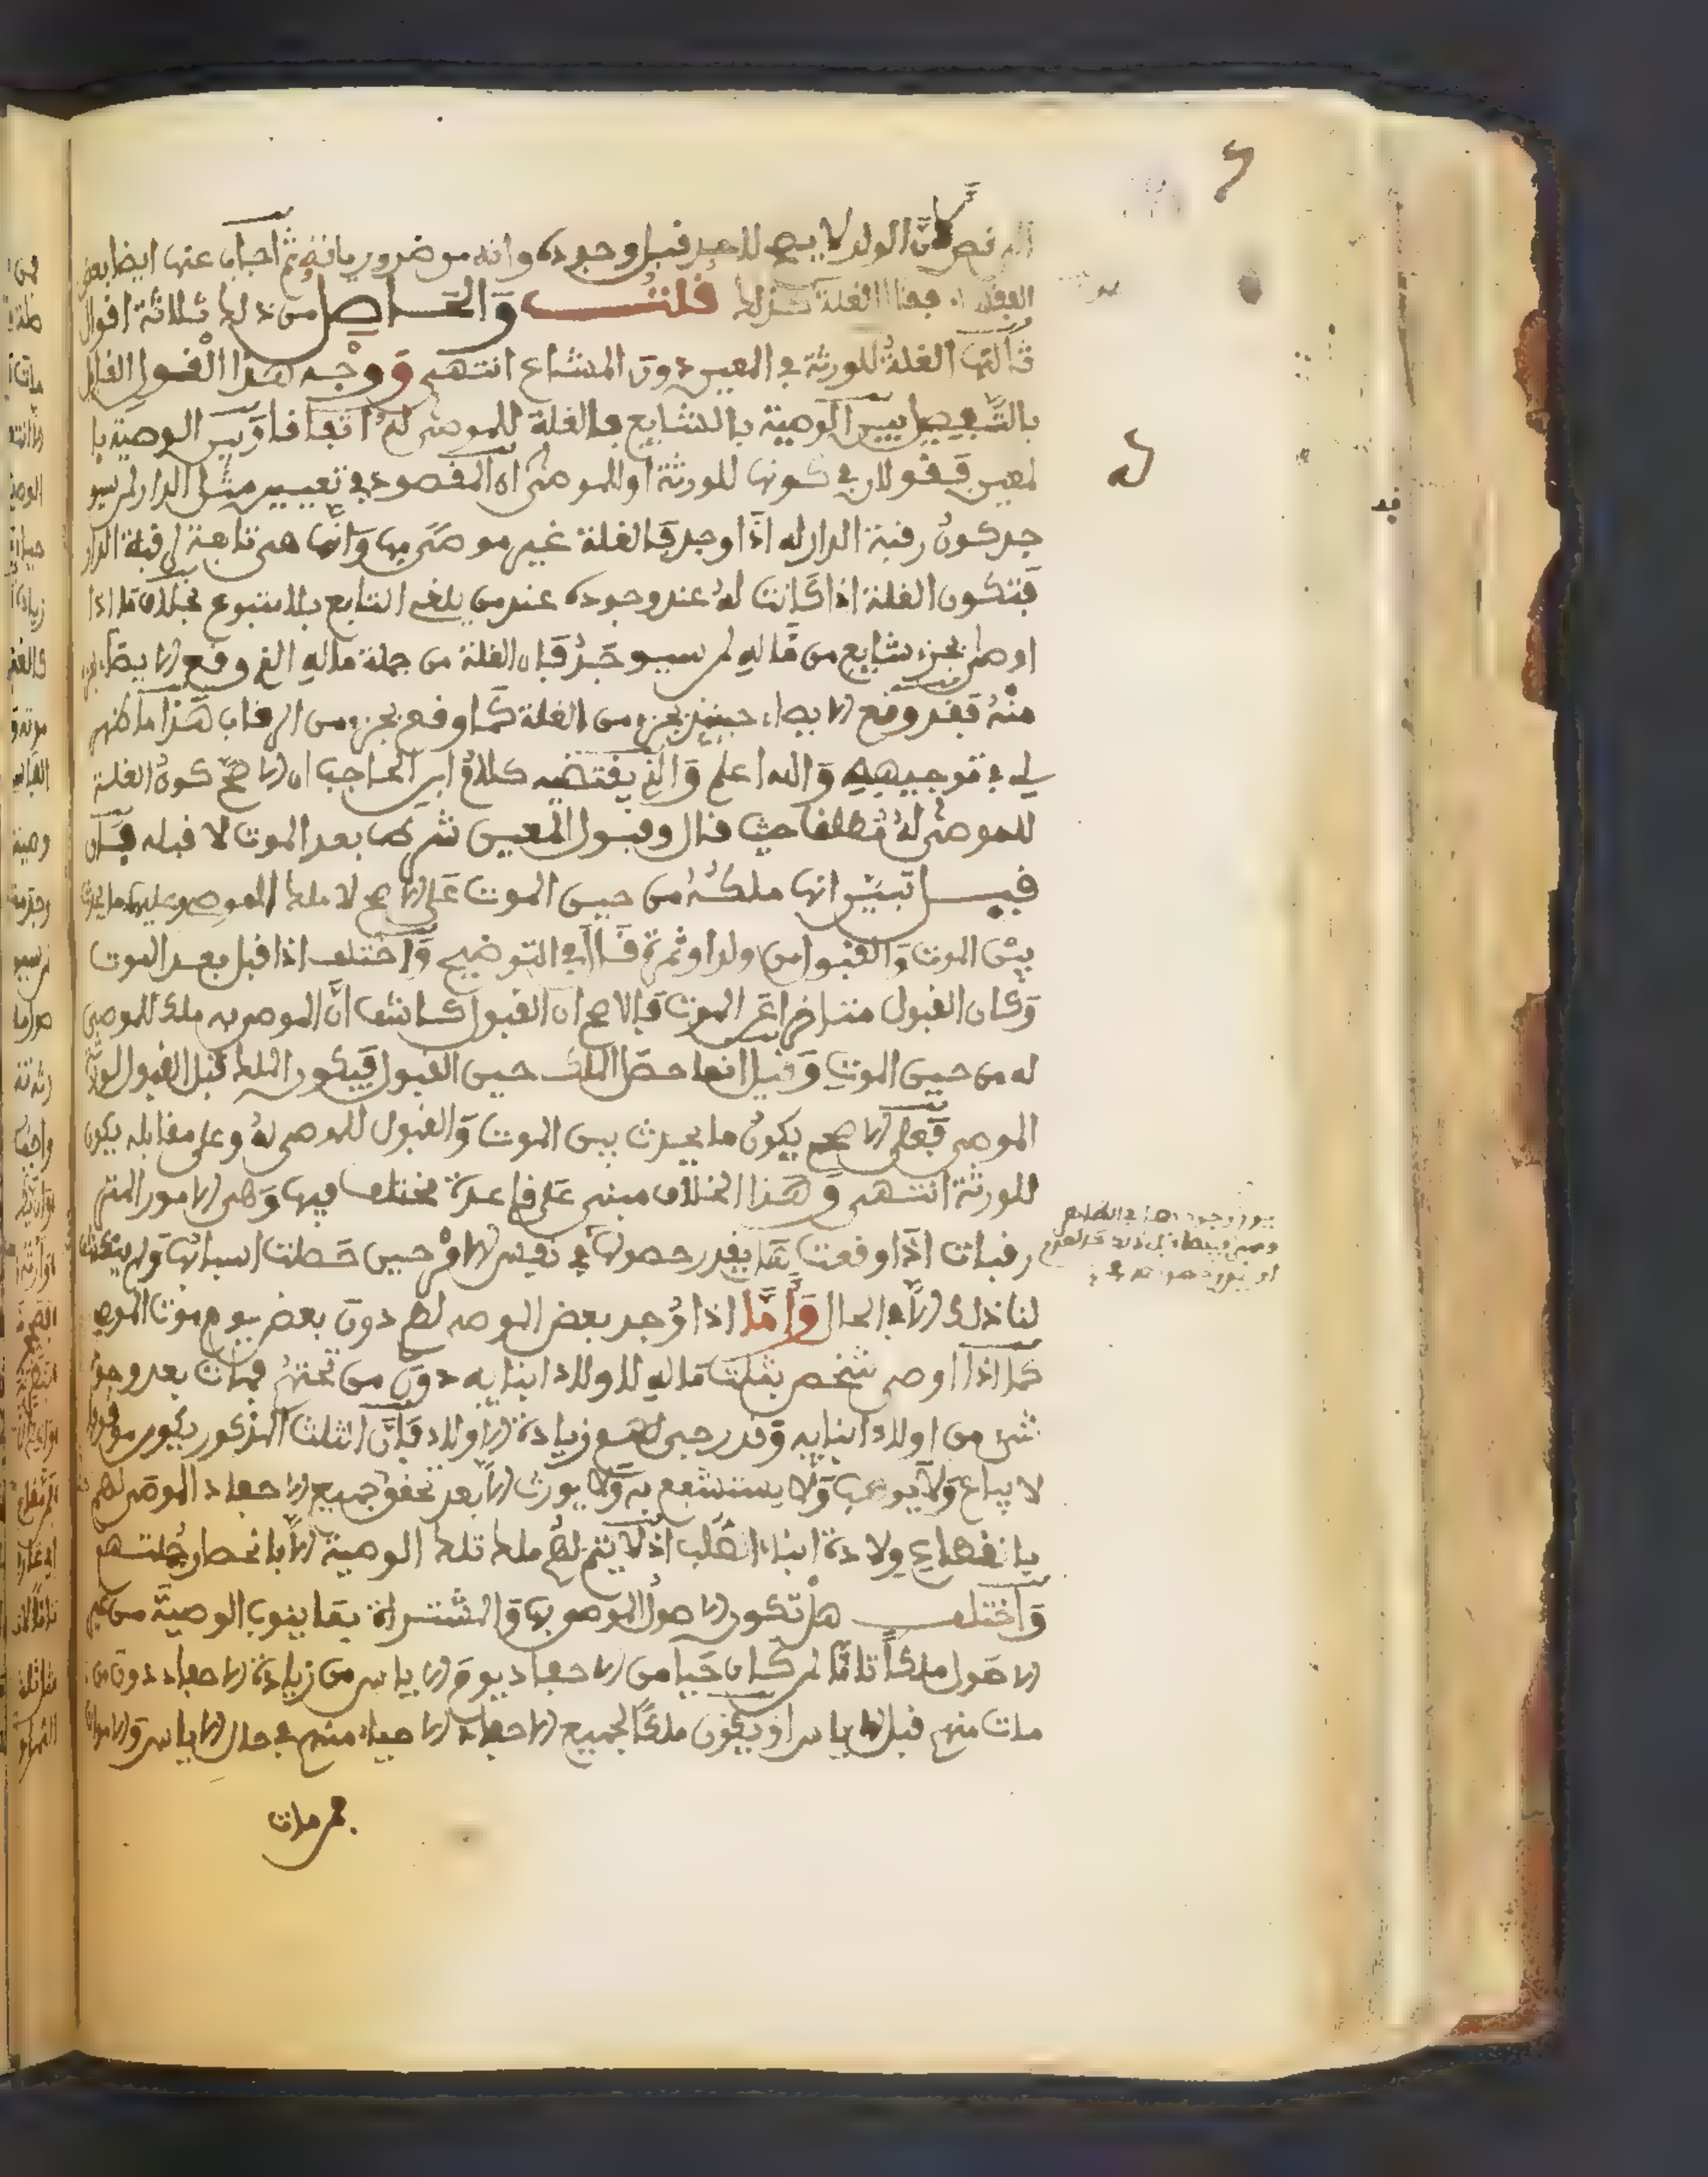 ان الولد لا يصح للعبد قبل وجوده وانه من ضرورياته ثم اجاب عنها ايضا بعض
الغلة كذلك قلت والحاصل من ذلك ثلاثة اقوال
ثالثها الغلة للورثة في المعين دون المشاع انتهى ووجه هذا القول القائل
بالتفصيل بين الوصية بالشايع فالغلة للموصى له اتفاقا وبين الوصية با
لمعين فقولان في كونها للورثة او للموصى ان المقصود في تعيين مثل الدار لمن سيو
جد كون رقبة الدار له اذا وجد فالغلة غير موصى بها وانما هي تابعة لرقبة الدار
فتكون الغلة اذا كانت له عند وجوده عند من يلغي التابع بلا متبوع بخلاف ما اذا
اوصى بجزء شايع من ماله لمن سيوجد فان الغلة من جملة ماله الذي وقع الايصاء بجزء
منه فقد وقع الايصاء حينئذ بجزء من الغلة كما وقع بجزء من الرقاب هذا ما ظهر
لي في توجيهه والله اعلم والذي يقتضيه كلام ابن الحاجب ان الاصح كون الغلة
للموصى له مطلقا حيث قال وقبول المعين شرطها بعد الموت لا قبله فان
قبل تبين انها ملكه من حين الموت على الاصح لا ملك الموصي وعليهما ما يحدث
بين الموت والقبول من ولد او ثمرة قال في التوضيح واختلف اذا قبل بعد الموت
وكان القبول متراخيا عن الموت فالاصح ان القبول كاشف ان الموصى به ملك للموصى
له من حين الموت وقيل انما حصل الملك حين القبول فيكون الملك قبل القبول لورثة
الموصي فعلى الاصح يكون ما يحدث بين الموت والقبول للموصى له وعلى مقابله يكون
للورثة انتهى وهذا الخلاف مبني على قاعدة مختلف فيها وهي الامور المتر
رقبات اذا وقعت هل يقدر حصولها في نفس الامر حين حصلت اسبابها ولم ينكشف
لنا ذلك الا في الحال واما اذا وجد بعض الموصى لهم دون بعض يوم موت الموصي
كما اذا اوصى شخص بثلث ماله لاولاد ابنايه دون من تحتهم فمات بعد وجود
شيء من اولاد ابنايه وقد رجي لهم زيادة الاولاد فان الثلث المذكور يكون موقوفا
لا يباع ولا يوهب ولا يستشفع به ولا يورث الا بعد تحقق جميع الاحفاد الموصى لهم
بانقطاع ولادة ابناء الصلب اذ لا يتم لهم ملك تلك الوصية الا بانحصار جملتهم
واختلف هل تكون الاصول الموصى بها والمشتراة بما ينوب الوصية من غير
الاصول ملكا تاما لمن كان حيا من الاحفاد يوم الاياس من زيادة الاحفاد دون من
مات منهم قبل الاياس او يكون ملكا لجميع الاحفاد الاحياء منهم في حال الاياس والاموات
فمن مات
له